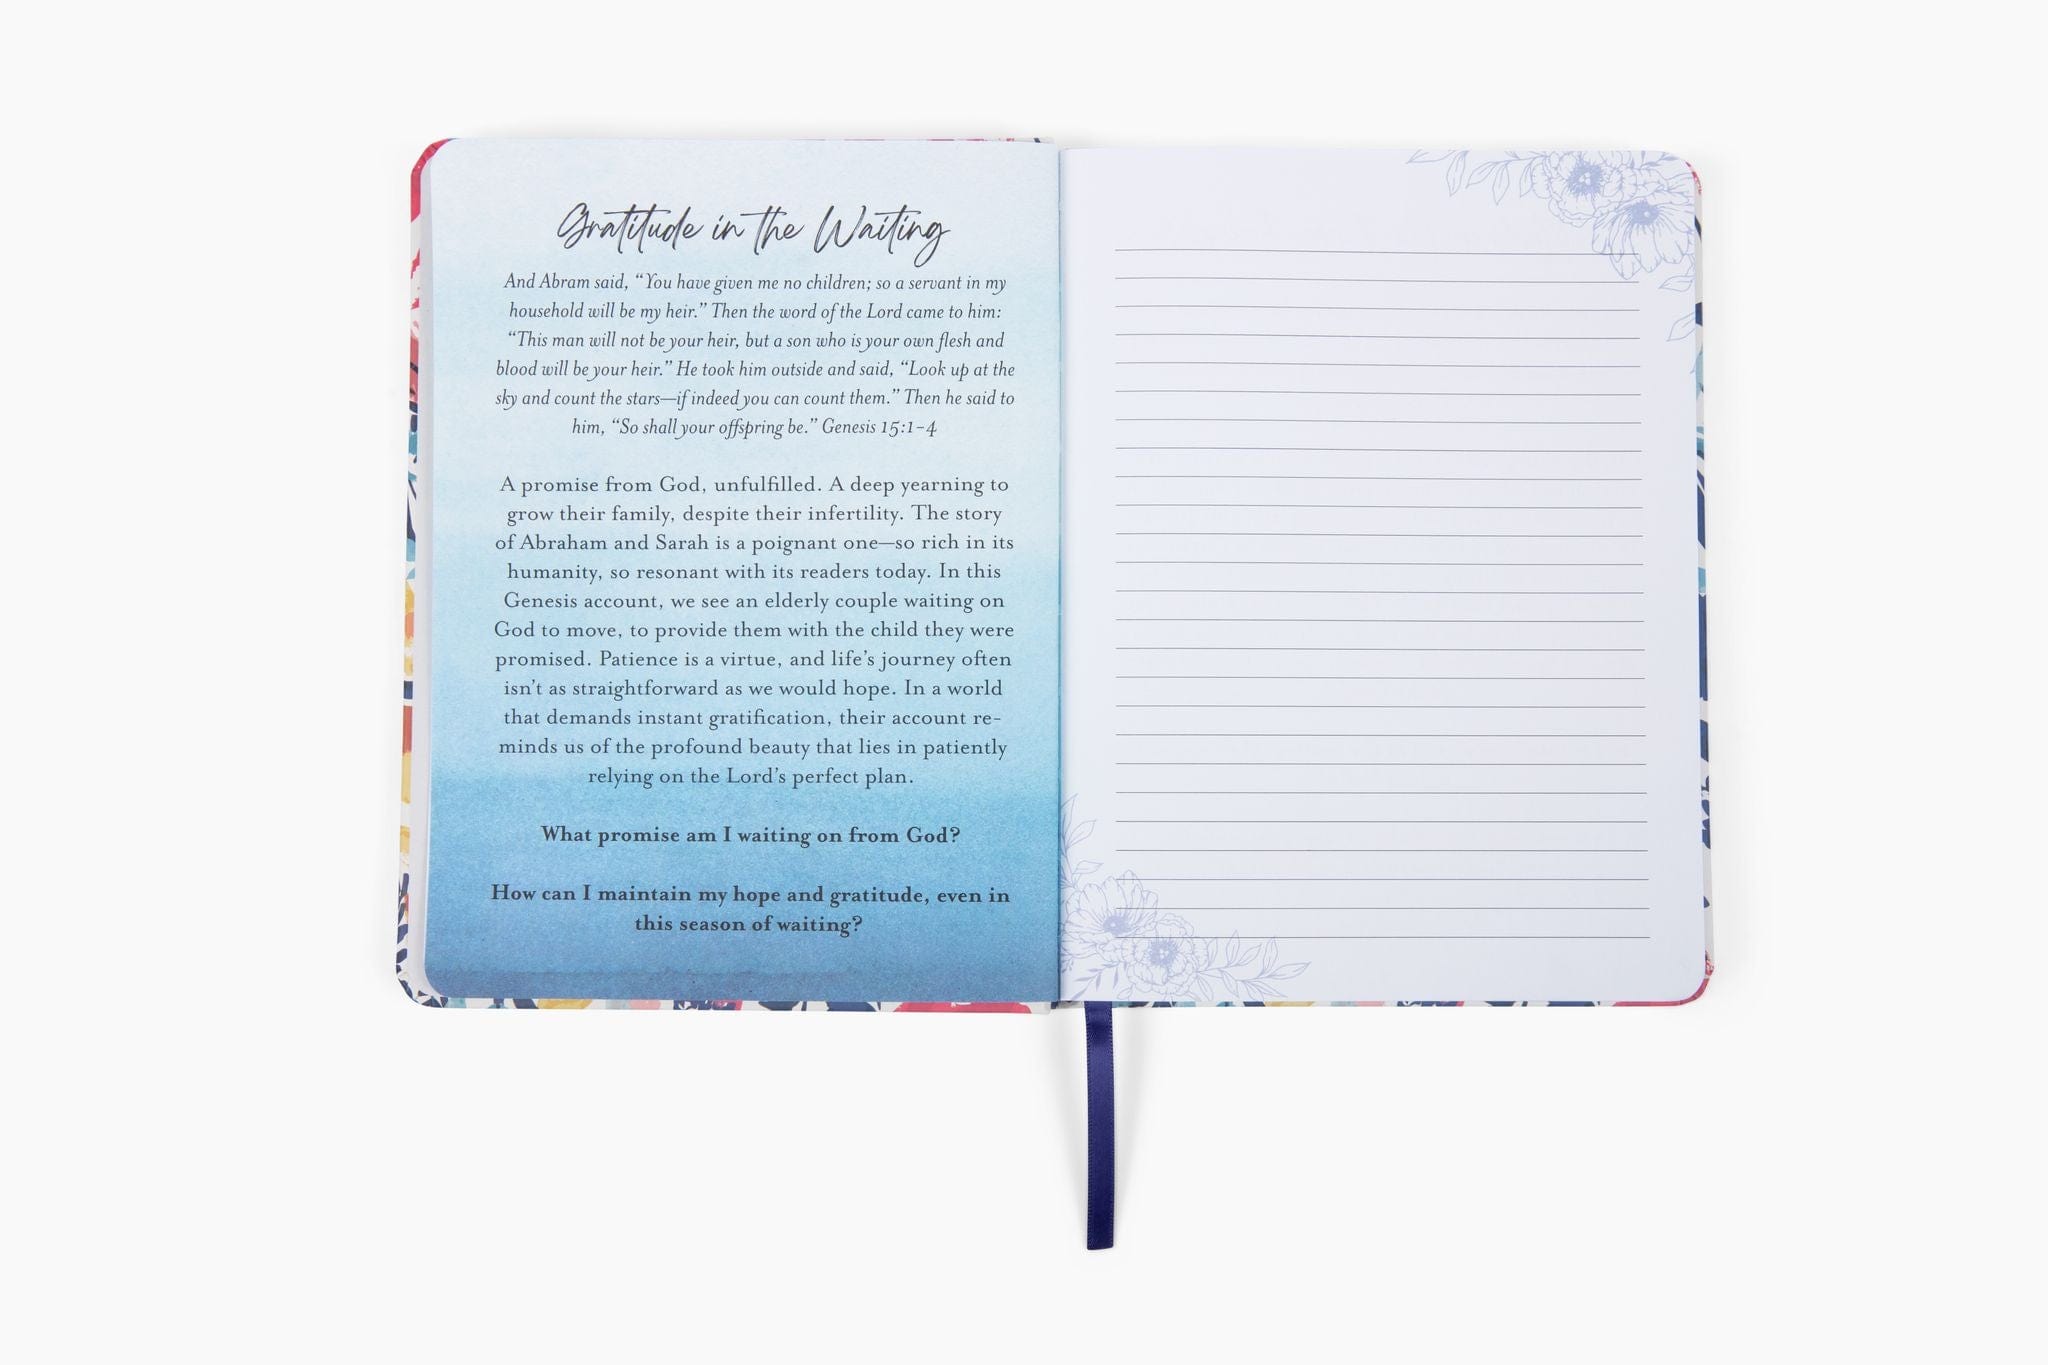 Gratitude in the Waiting
And Abram said, “You have given me no children; so a servant in my
household will be my heir.” Then the word of the Lord came to him:
“This man will not be your heir, but a son who is your own flesh and
blood will be your heir.” He took him outside and said, “Look up at the
sky and count the stars—if indeed you can count them.” Then he said to
him, “So shall your offspring be.” Genesis 15:1-4
A promise from God, unfulfilled. A deep yearning to
grow their family, despite their infertility. The story
of Abraham and Sarah is a poignant one—so rich in its
humanity, so resonant with its readers today. In this
Genesis account, we see an elderly couple waiting on
God to move, to provide them with the child they were
promised. Patience is a virtue, and life’s journey often
isn’t as straightforward as we would hope. In a world
that demands instant gratification, their account re-
minds us of the profound beauty that lies in patiently
relying on the Lord’s perfect plan.
What promise am I waiting on from God?
How can I maintain my hope and gratitude, even in
this season of waiting?